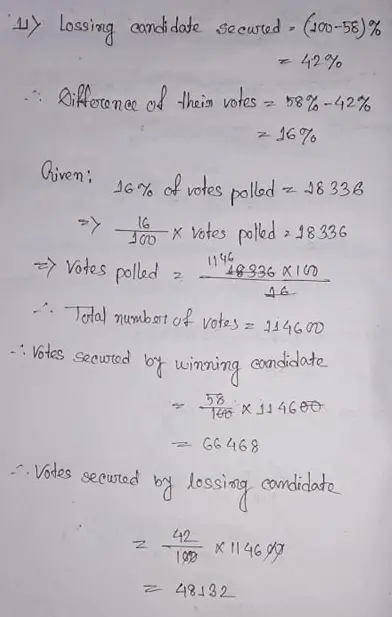 11> Lossing candidate secured = (100-58)%
= 42%
∴ Difference of their votes = 58% - 42%
= 16%
Given:
16% of votes polled = 18336
=> 16/100 × votes polled = 18336
=> Votes polled = 1146 18336 × 100 / 16
∴ Total number of votes = 114600
∴ Votes secured by winning candidate
= 58/100 × 114600
= 66468
∴ Votes secured by lossing candidate
= 42/100 × 114600
= 48132